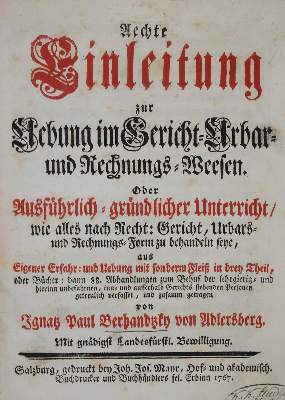 Aechte
Einleitung
zur
Uebung im Gericht-Urbar-
und Rechnungs-Weesen.
Oder
Ausführlich-gründlicher Unterricht/
wie alles nach Recht: Gericht, Urbars-
und Rechnungs-Form zu behandeln seye,
aus
Eigener Erfahr: und Uebung mit sondern Fleiß in drey Theil,
oder Bücher: dann Abhandlungen zum Behuf der
hierinn unerfahrnen, in- und ausserhalb Gerichts stehenden Persohnen
getreulich verfasset, und zusamm getragen
von
Ignatz Paul Berhandtzky von Adlersberg.
Mit gnädigst Landesfürstl. Bewilligung.
Salzburg, gedruckt bey Joh. Jos. Mayr, Hof- und akademisch.
Buchdrucker und Buchhändlers sel. Erbinn 1767.